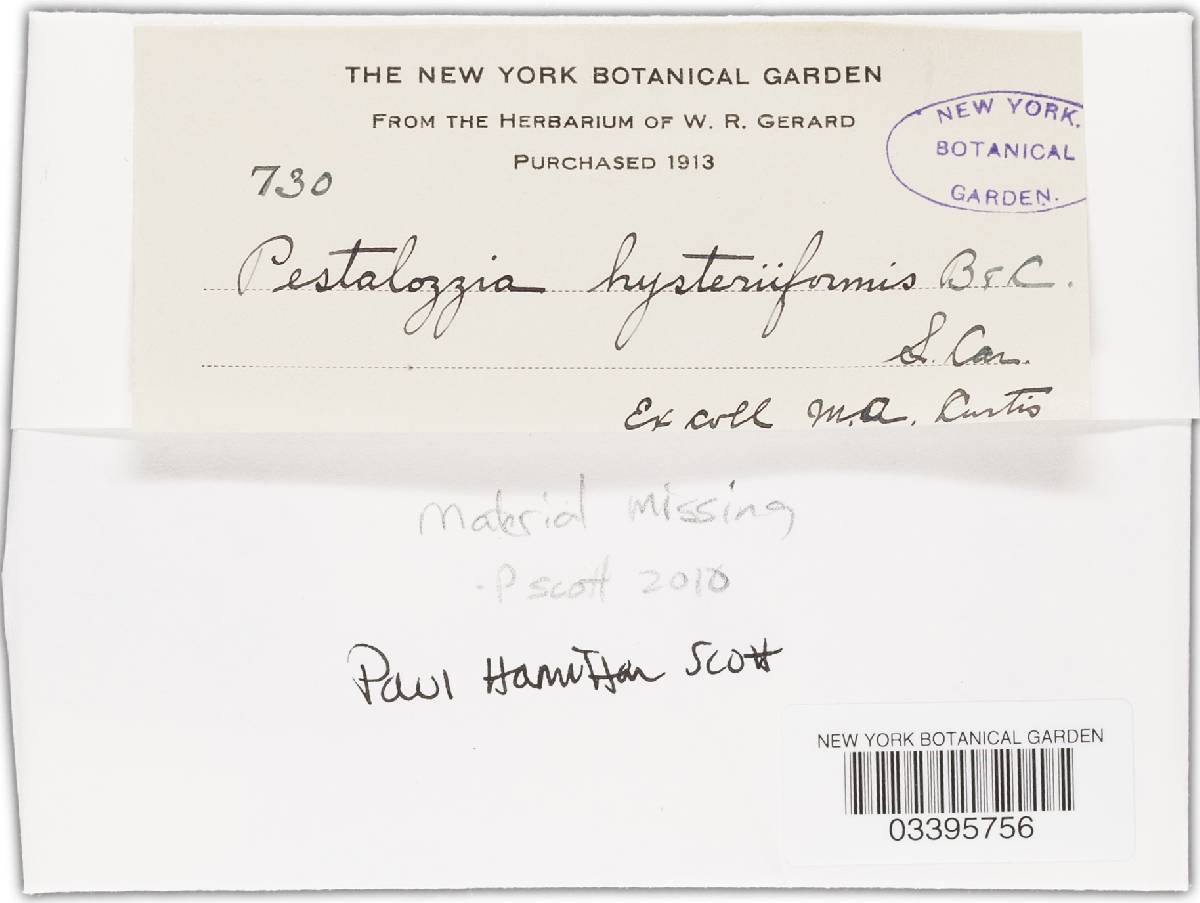 THE NEW YORK BOTANICAL GARDEN
FROM THE HERBARIUM OF W. R. GERARD
PURCHASED 1913
NEW YORK.
BOTANICAL
GARDEN.
730
Pestalozzia hysteriiformis B & C.
S. Car.
Ex coll M.A. Curtis
Material missing
-P Scott 2010
Paul Hamilton Scott
NEW YORK BOTANICAL GARDEN
03395756